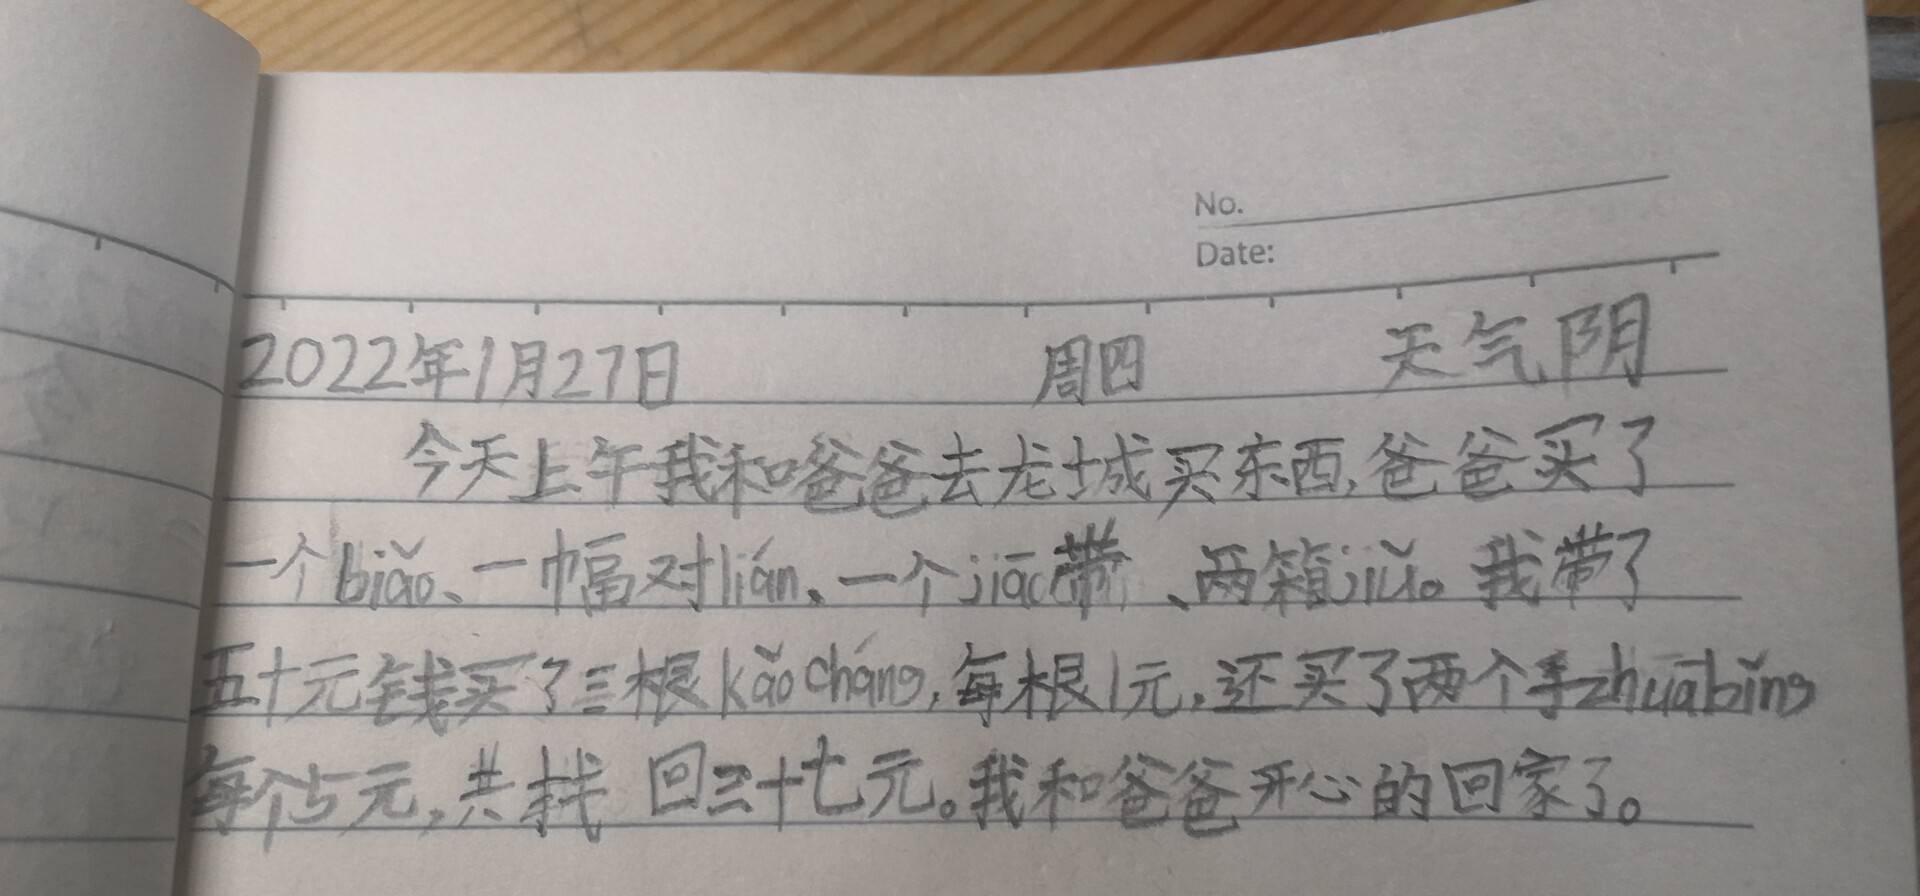 No.
Date:
2022年1月27日 周四 天气阴
今天上午我和爸爸去龙城买东西,爸爸买了
一个biǎo、一幅对lián、一个jiāo带、两箱jiǔ。我带了
五十元钱买了三根kǎocháng,每根1元,还买了两个手zhuābǐng
每个5元,共找回三十七元。我和爸爸开心的回家了。